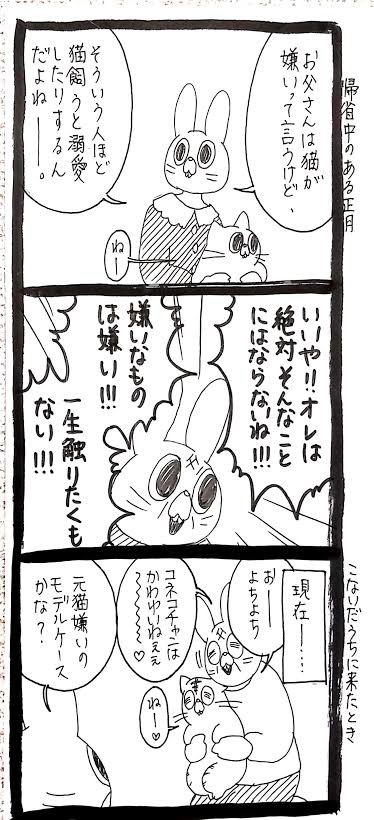 帰省中のある正月
お父さんは猫が
嫌いって言うけど、
そういう人ほど
猫飼うと溺愛
したりするん
だよねーー。
ねー
いいや!!オレは
絶対そんなこと
にはならないね!!!
嫌いなもの
は嫌い!!!
一生触りたくも
ない!!!
こないだうちに来たとき
現在ー…
おーー
よちよち
コネコチャンは
かわゆいねぇぇ
〜〜〜〜♡
ねー♡
元猫嫌いの
モデルケース
かな?